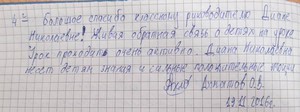 4- Большое спасибо классному руководителю Диане
Николаевне! Живая обратная связь о детях на уроке
Урок проходит очень активно. Диана Николаевна
несёт детям знания и сильные положительные эмоции
О.В.
19.11.2016г